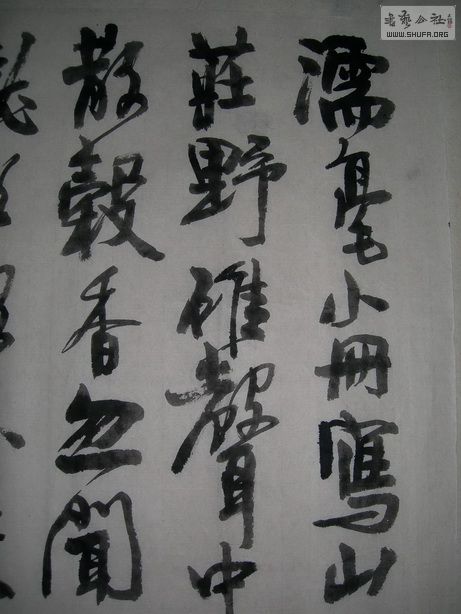 濡毫小冊寫山
莊野碓聲中
散穀香忽聞
書藝公社
WWW.SHUFA.ORG